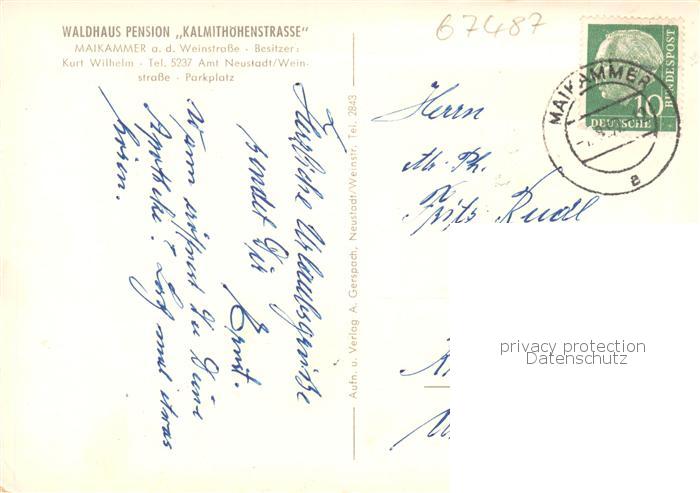 WALDHAUS PENSION „KALMITHÖHENSTRASSE"
MAIKAMMER a. d. Weinstraße - Besitzer:
Kurt Wilhelm - Tel. 5237 Amt Neustadt/Wein-
straße - Parkplatz
67487
DEUTSCHE BUNDESPOST
10
MAIKAMMER
a
Herzliche Urlaubsgrüße
sendet Dir
Ernst.
Wann eröffnest Du Deine
Apotheke? Laß mal etwas
hören.
Aufn. u. Verlag A. Gerspach, Neustadt/Weinstr. Tel. 2843
Herrn
Mr. Ph.
Fritz Riedl
privacy protection
Datenschutz